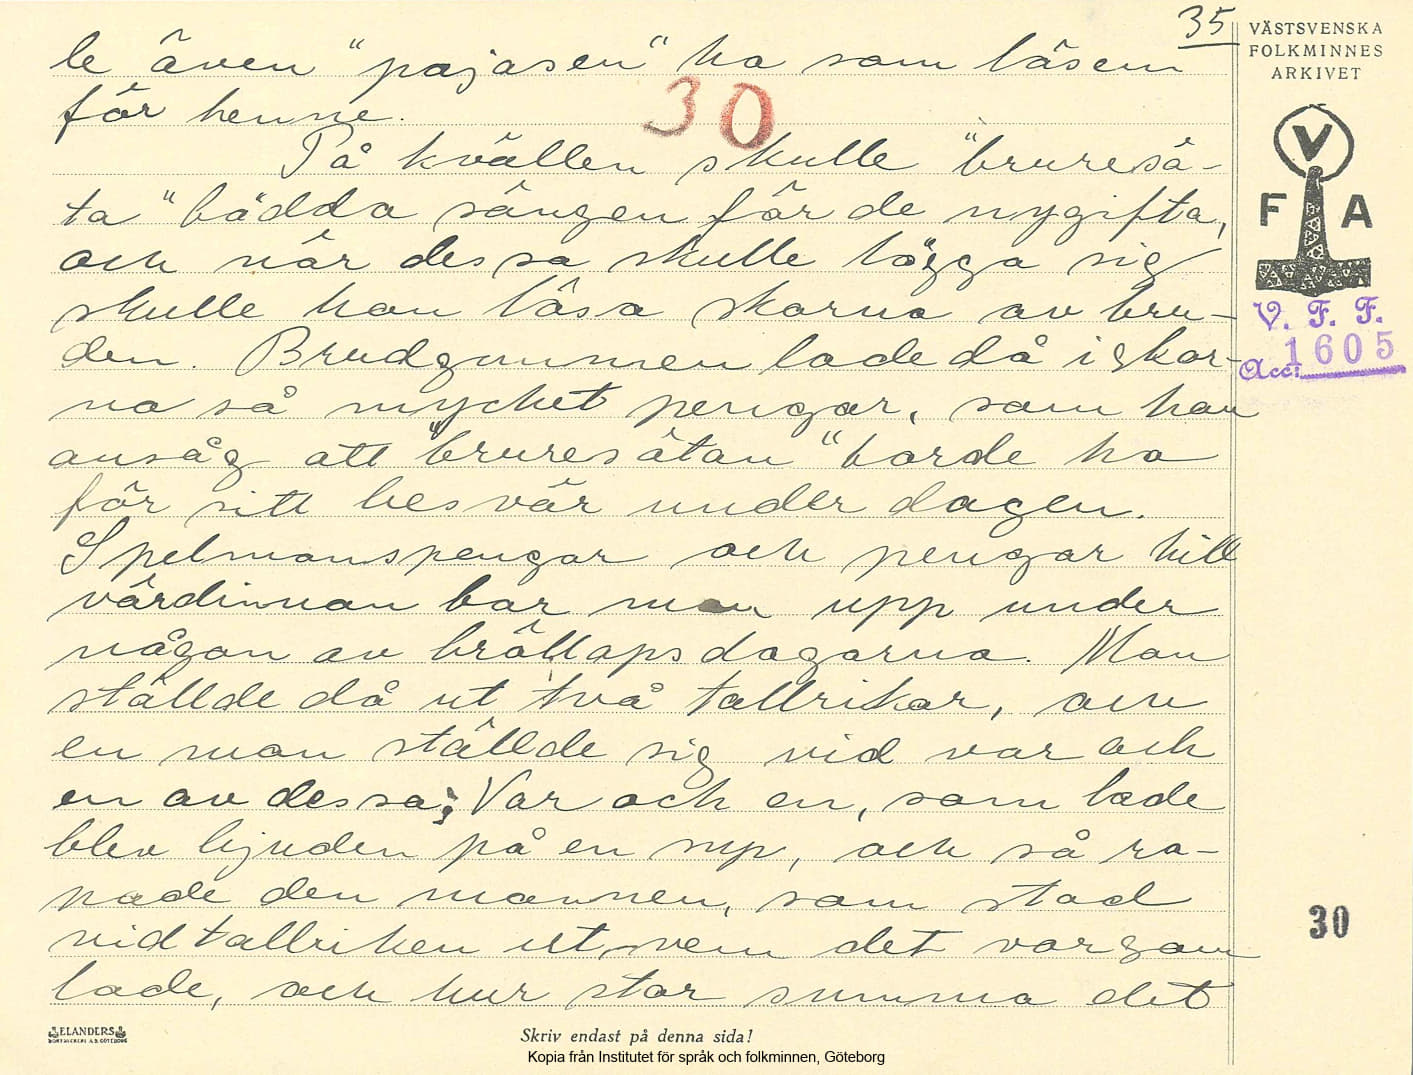 35
VÄSTSVENSKA
FOLKMINNES
ARKIVET
le även "pajasen" ha som läsem
för henne.
30
På kvällen skulle "bruresä-
ta" bädda sängen för de nygifta,
och när dessa skulle lägga sig
skulle hon lösa skorna av bru-
den. Brudgummen lade då i skor-
na så mycket pengar, som han
ansåg att "bruresätan" borde ha
för sitt besvär under dagen.
Spelmanspengar och pengar till
värdinnan bar man upp under
någon av bröllopsdagarna. Man
ställde då ut två tallrikar, och
en man ställde sig vid var och
en av dessa; Var och en, som lade
blev bjuden på en sup, och så ro-
pade den mannen, som stod
vid tallriken ut, vem det var som
lade, och hur stor summa det
V
F A
V. F. F.
Acc: 1605
30
ELANDERS
BOKTRYCKERI A.B. GÖTEBORG
Skriv endast på denna sida!
Kopia från Institutet för språk och folkminnen, Göteborg